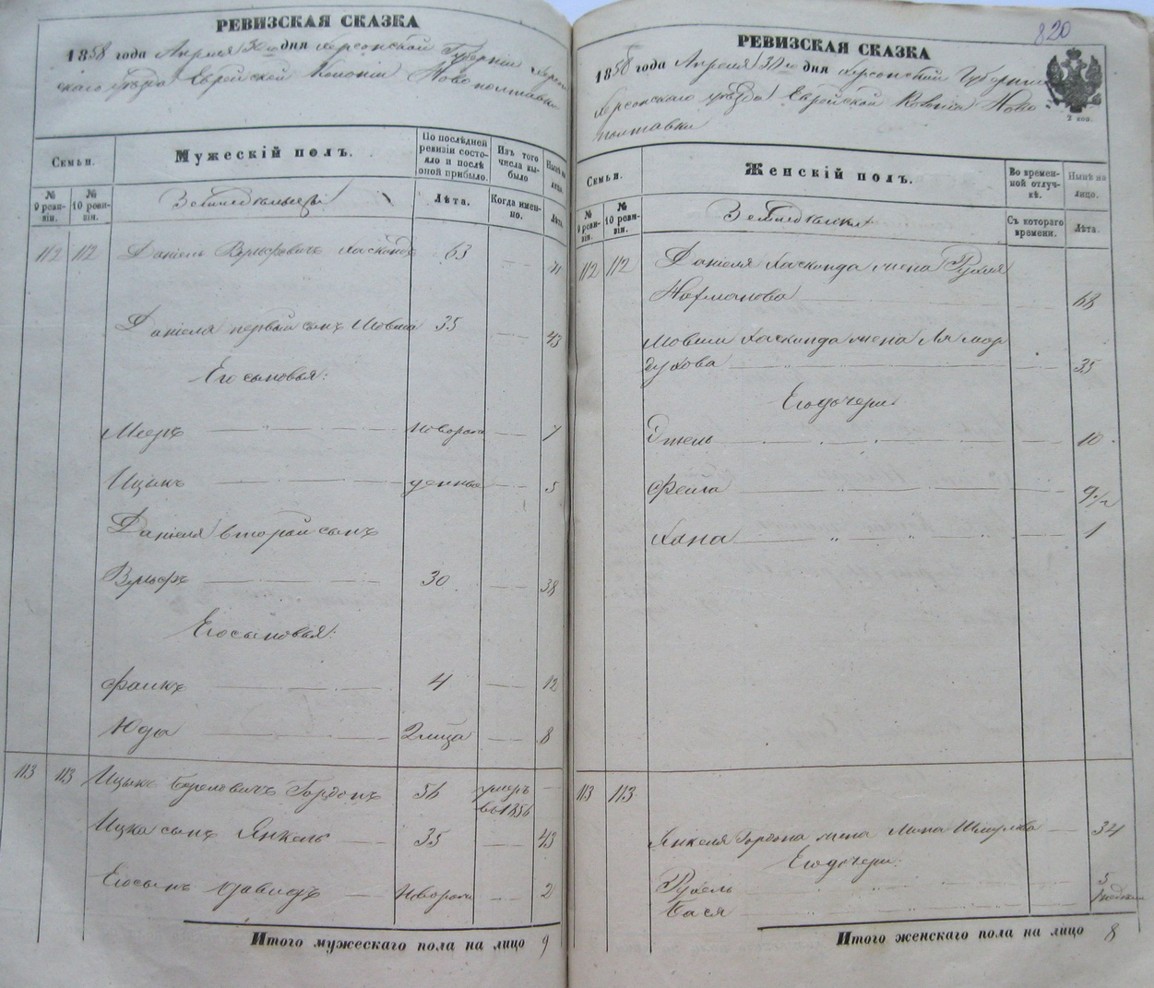 РЕВИЗСКАЯ СКАЗКА
1858 года Апреля 30го дня Херсонской Губерніи Херсон
скаго уѣзда Еврейской Колоніи Новополтавки
Семьи.
Мужескій полъ.
По послѣдней ревизіи состояло и послѣ оной прибыло.
Изъ того числа выбыло
Нынѣ на лицо.
№ 9 ревизіи.
№ 10 ревизіи.
Земледельцы
Лѣта.
Когда именно.
Лѣта.
112 112 Даніель Вульфовичъ 63 71
Даніеля первый сынъ Мовша 35 43
Его сыновья:
Мееръ новорож 7
Ицыкъ денны 5
Даніеля второй сынъ
Вульфъ 30 38
Его сыновья:
Фаикъ 4 12
Юды 8
113 113 Ицыкъ Берковичъ Гордонъ 56 умеръ въ 1856
Ицка сынъ Янкель 35 43
Его сынъ Давидъ Новорож 2
Итого мужескаго пола на лицо 9
820
РЕВИЗСКАЯ СКАЗКА
1858 года Апреля 30го дня Херсонской Губерніи
Херсонскаго уѣзда Еврейской Колоніи Ново
полтавки
2 коп.
Семьи.
Женскій полъ.
Во временной отлучкѣ.
Нынѣ на лицо.
№ 9 ревизіи.
№ 10 ревизіи.
Съ котораго времени.
Лѣта.
112 112 Даніеля жена Рухля
Нахманова 68
Мовши жена Лея Мор
духова 35
Его дочери:
Этель " " " 10
Фейга " 9 1/2
Хана " " " " 1
113 113
Янкеля Гордона жена Мина Шмулева 34
Его дочери:
Рухель " " 5
Бася "
Итого женскаго пола на лицо 8